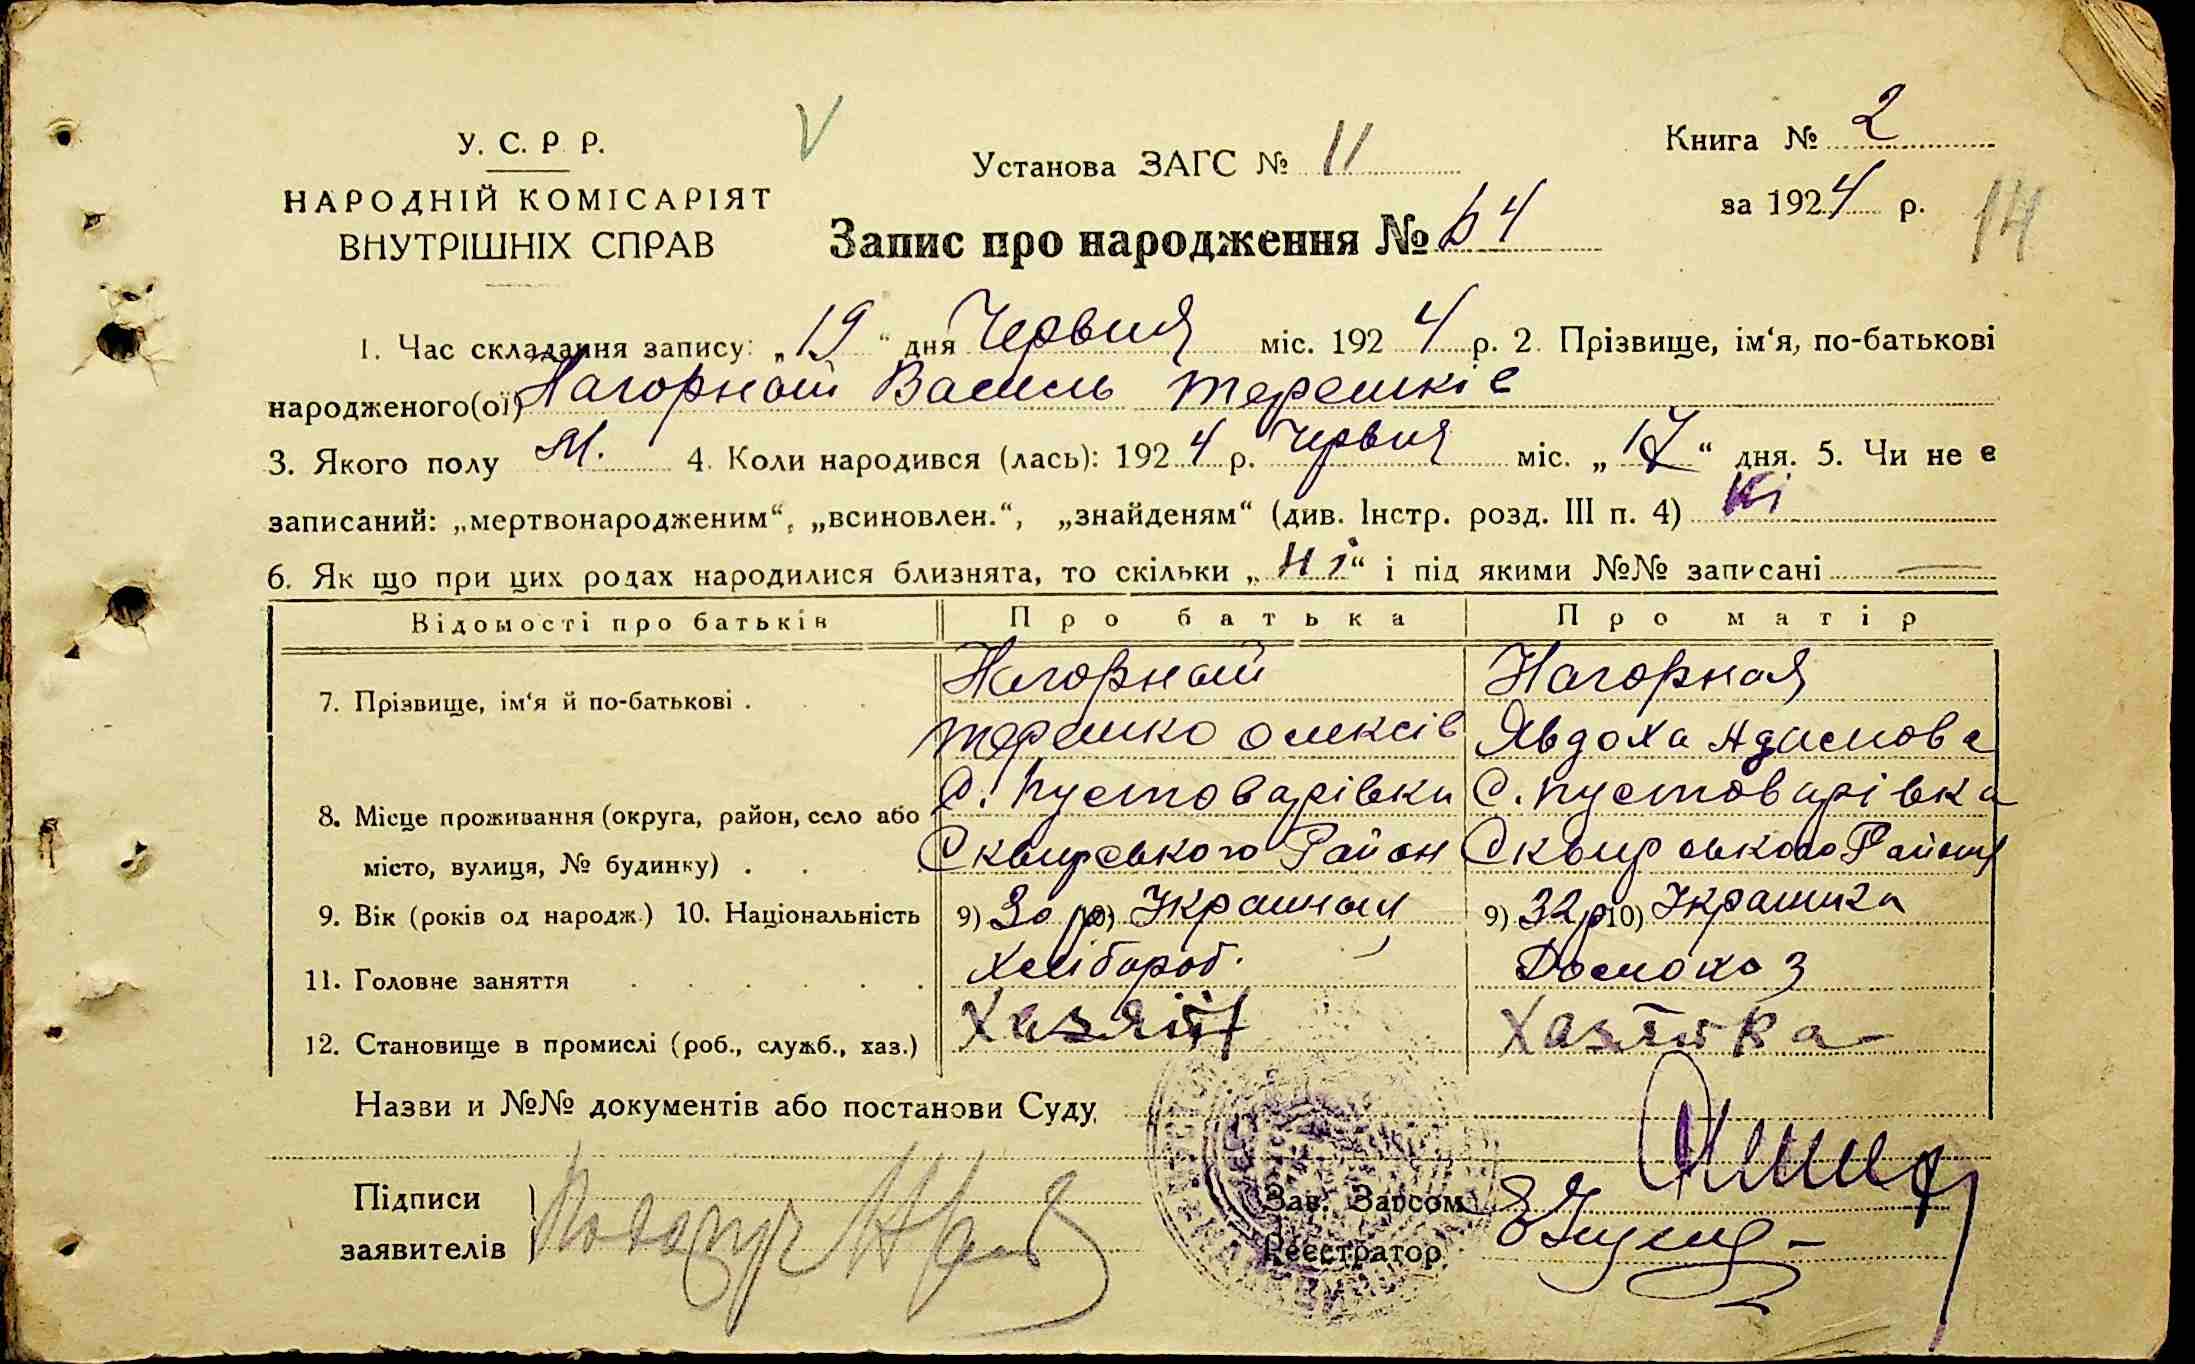 У. С. Р Р.
НАРОДНІЙ КОМІСАРІЯТ
ВНУТРІШНІХ СПРАВ
V
Установа ЗАГС № 11
Книга № 2
за 1924 р.
14
Запис про народження № 64
1. Час складання запису: „19“ дня Червня міс. 1924 р. 2. Прізвище, ім‘я, по-батькові
народженого(ої) Нагорный Василь Терешків
3. Якого полу М. 4. Коли народився (лась): 1924 р. Червня міс. „17“ дня. 5. Чи не є
записаний: „мертвонародженим“, „всиновлен.“, „знайденям“ (див. Інстр. розд. III п. 4) Ні
6. Як що при цих родах народилися близнята, то скільки „ні“ і під якими №№ записані —
Відомості про батьків Про батька Про матір
7. Прізвище, ім‘я й по-батькові . Нагорный Нагорная
Терешко Олексів Явдоха Адамова
8. Місце проживання (округа, район, село або С. Пустоварівки С. Пустоварівка
місто, вулиця, № будинку) . Сквирського Район Сквирського Району
9. Вік (років од народж.) 10. Національність 9) 30 р 10) Украинец 9) 32 р 10) Украинка
11. Головне заняття Хлібороб. Домохоз
12. Становище в промислі (роб., служб., хаз.) Хазяїн Хазяйка
Назви и №№ документів або постанови Суду
Підписи
заявителів
Зав. Загсом
Реєстратор